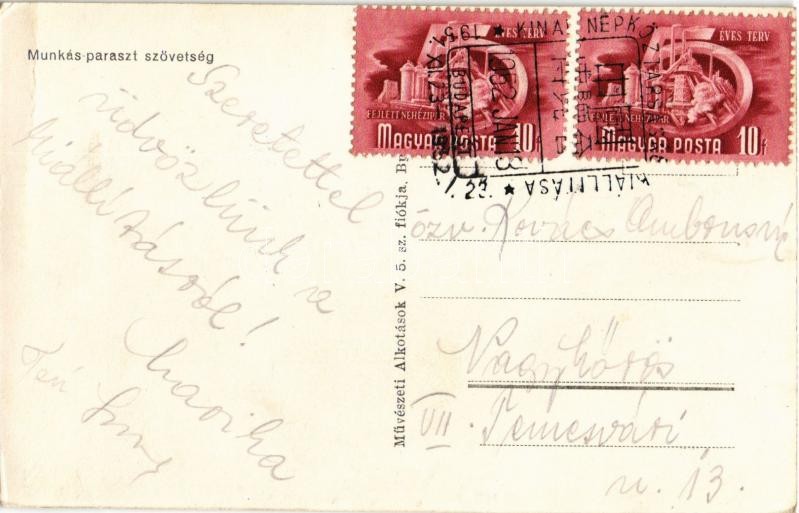 Munkás-paraszt szövetség
Szeretettel
üdvözlünk a
kiállításról!
Mariha
Művészeti Alkotások V. 5. sz. fiókja, Bp
5 ÉVES TERV
FEJLETT NEHÉZIPAR
MAGYAR POSTA 10f
5 ÉVES TERV
FEJLETT NEHÉZIPAR
MAGYAR POSTA 10f
KINAI NÉPKÖZTÁRSASÁG
KIÁLLITÁSA
1951. XI. 23. - 1952. I. 23.
BUDAPEST
1952 JAN 13
özv. Kovács Ambrusné
Nagykőrös
VII. Temesvári
u. 13.